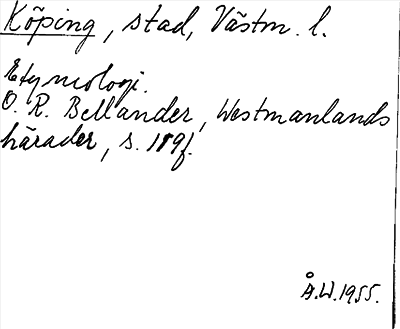 Köping, stad, Västm. l.
Etymologi.
O. R. Bellander, Westmanlands
härader, s. 189f.
Å.W. 1955.